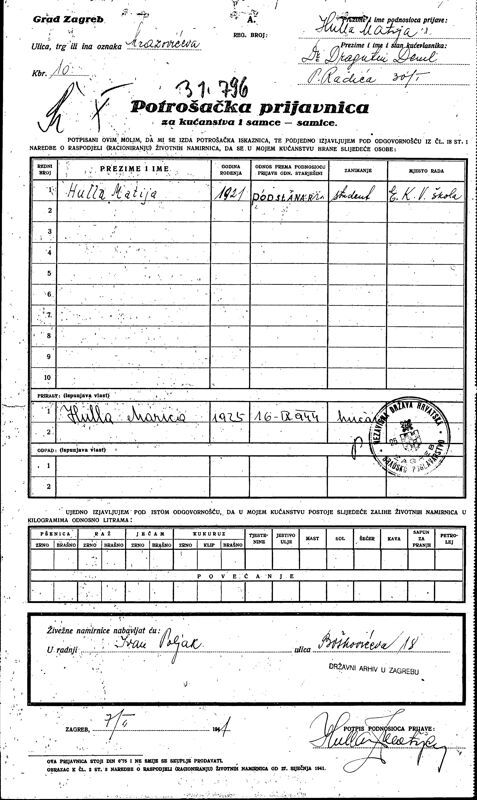 Grad Zagreb
A.
REG. BROJ:
Prezime i ime podnosioca prijave:
Hulla Matija
Ulica, trg ili ina oznaka
Prezime i ime i stan kućevlasnika:
Dr Dragutin
Kbr. 10
P. Radića 30/I
31.796
Potrošačka prijavnica
za kućanstva i samce — samice.
POTPISANI OVIM MOLIM, DA MI SE IZDA POTROŠAČKA ISKAZNICA, TE PODJEDNO IZJAVLJUJEM POD ODGOVORNOŠĆU IZ ČL. 18 ST. 1
NAREDBE O RASPODJELI (RACIONIRANJU) ŽIVOTNIH NAMIRNICA, DA SE U MOJEM KUĆANSTVU HRANE SLIJEDEĆE OSOBE:
REDNI BROJ PREZIME I IME GODINA ROĐENJA ODNOS PREMA PODNOSIOCU PRIJAVE ODN. STARJEŠINI ZANIMANJE MJESTO RADA
1 Hulla Matija 1921 student E. K. V. škola
2
3
4
5
6
7
8
9
10
PRIRAST: (Ispunjava vlast)
1 Hulla Marica 1925 16-IX 944
2
NEZAVISNA DRŽAVA HRVATSKA
ZAGREB
GRADSKO POGLAVARSTVO
OTPAD: (Ispunjava vlast)
1
2
UJEDNO IZJAVLJUJEM POD ISTOM ODGOVORNOŠĆU, DA U MOJEM KUĆANSTVU POSTOJE SLIJEDEĆE ZALIHE ŽIVOTNIH NAMIRNICA U
KILOGRAMIMA ODNOSNO LITRAMA:
PŠENICA RAŽ JEČAM KUKURUZ TJESTENINE JESTIVO ULJE MAST SOL ŠEĆER KAVA SAPUN ZA PRANJE PETROLEJ
ZRNO BRAŠNO ZRNO BRAŠNO ZRNO BRAŠNO ZRNO KLIP BRAŠNO
POVEĆANJE
Živežne namirnice nabavljat ću:
U radnji Ivan Poljak ulica Boškovićeva 18
DRŽAVNI ARHIV U ZAGREBU
ZAGREB, 7/II 1941
POTPIS PODNOSIOCA PRIJAVE:
Hulla Matija
OVA PRIJAVNICA STOJI DIN 0'75 I NE SMIJE SE SKUPLJE PRODAVATI.
OBRAZAC K ČL. 2 ST. 2 NAREDBE O RASPODJELI (RACIONIRANJU) ŽIVOTNIH NAMIRNICA OD 27. SIJEČNJA 1941.